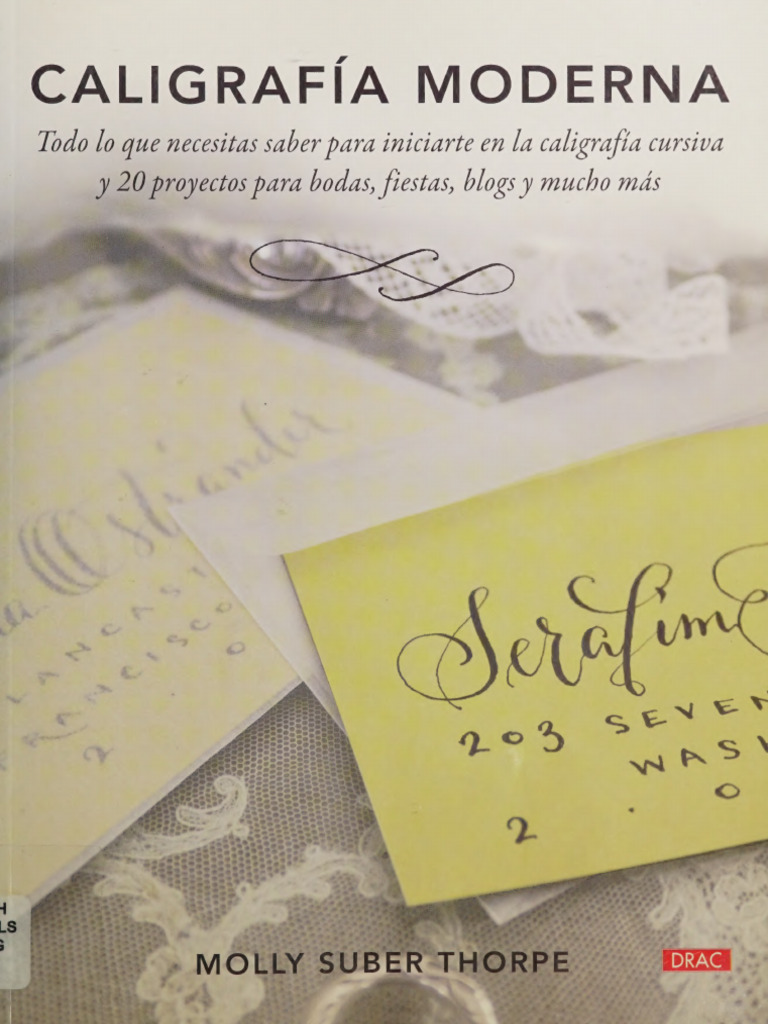 CALIGRAFÍA MODERNA
Todo lo que necesitas saber para iniciarte en la caligrafía cursiva
y 20 proyectos para bodas, fiestas, blogs y mucho más
LANCAS
FRANCISCO
2 0
Serafim
203 SEVEN
WASH
2 . 0
H
LS
G
MOLLY SUBER THORPE
DRAC